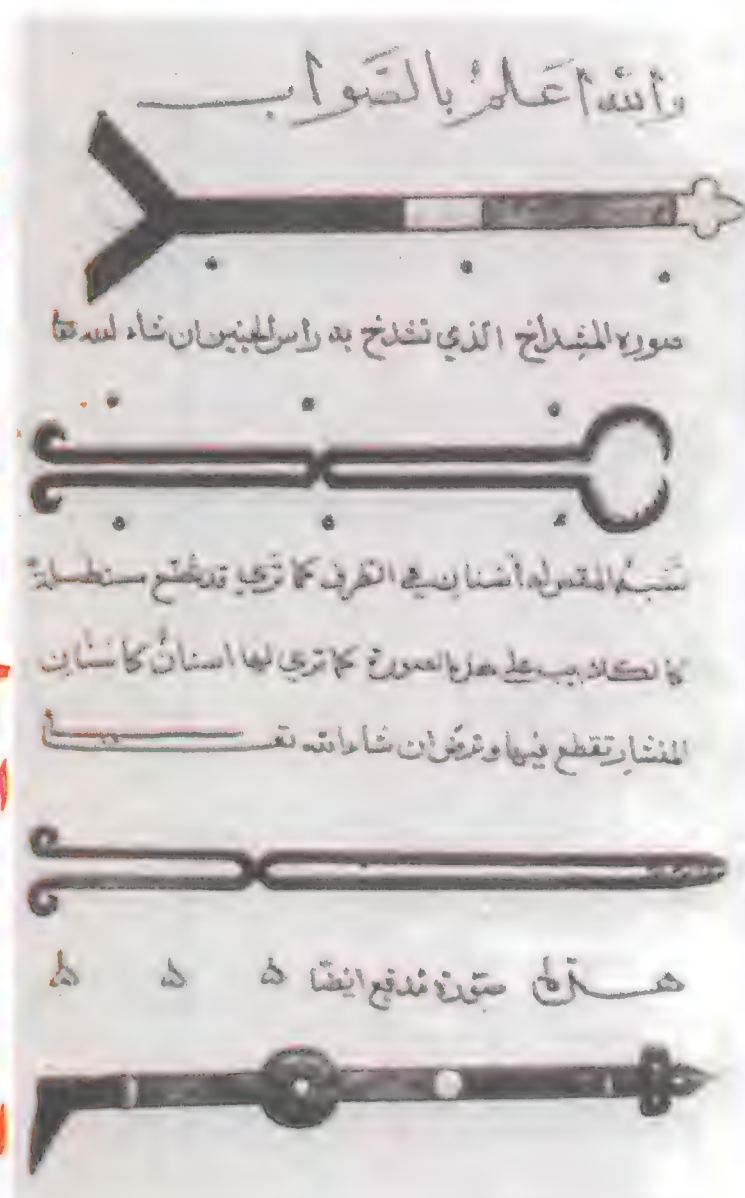 والله اعلم بالصواب
صورة المشداخ الذي تشدخ به راس الجنين ان شاء الله تعا
تشبه المقص له أسنان في الطرف كما ترى وقد تصنع مستطيلة
كالكلاليب على هذه الصورة كما تري لها اسنان كاسنان
المنشار تقطع فيها وترض ان شاء الله تعــــــا
صورة مدفع ايضا ه ه ه